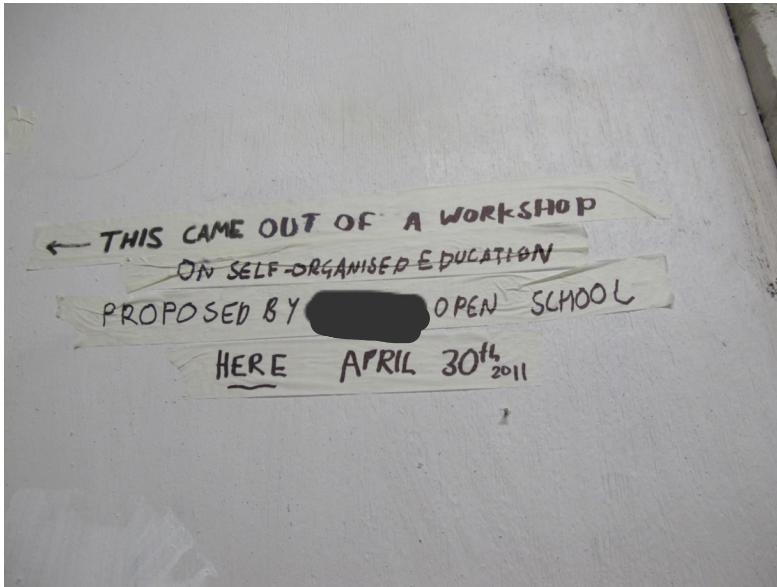 ← THIS CAME OUT OF A WORKSHOP
ON SELF-ORGANISED EDUCATION
PROPOSED BY OPEN SCHOOL
HERE APRIL 30th 2011